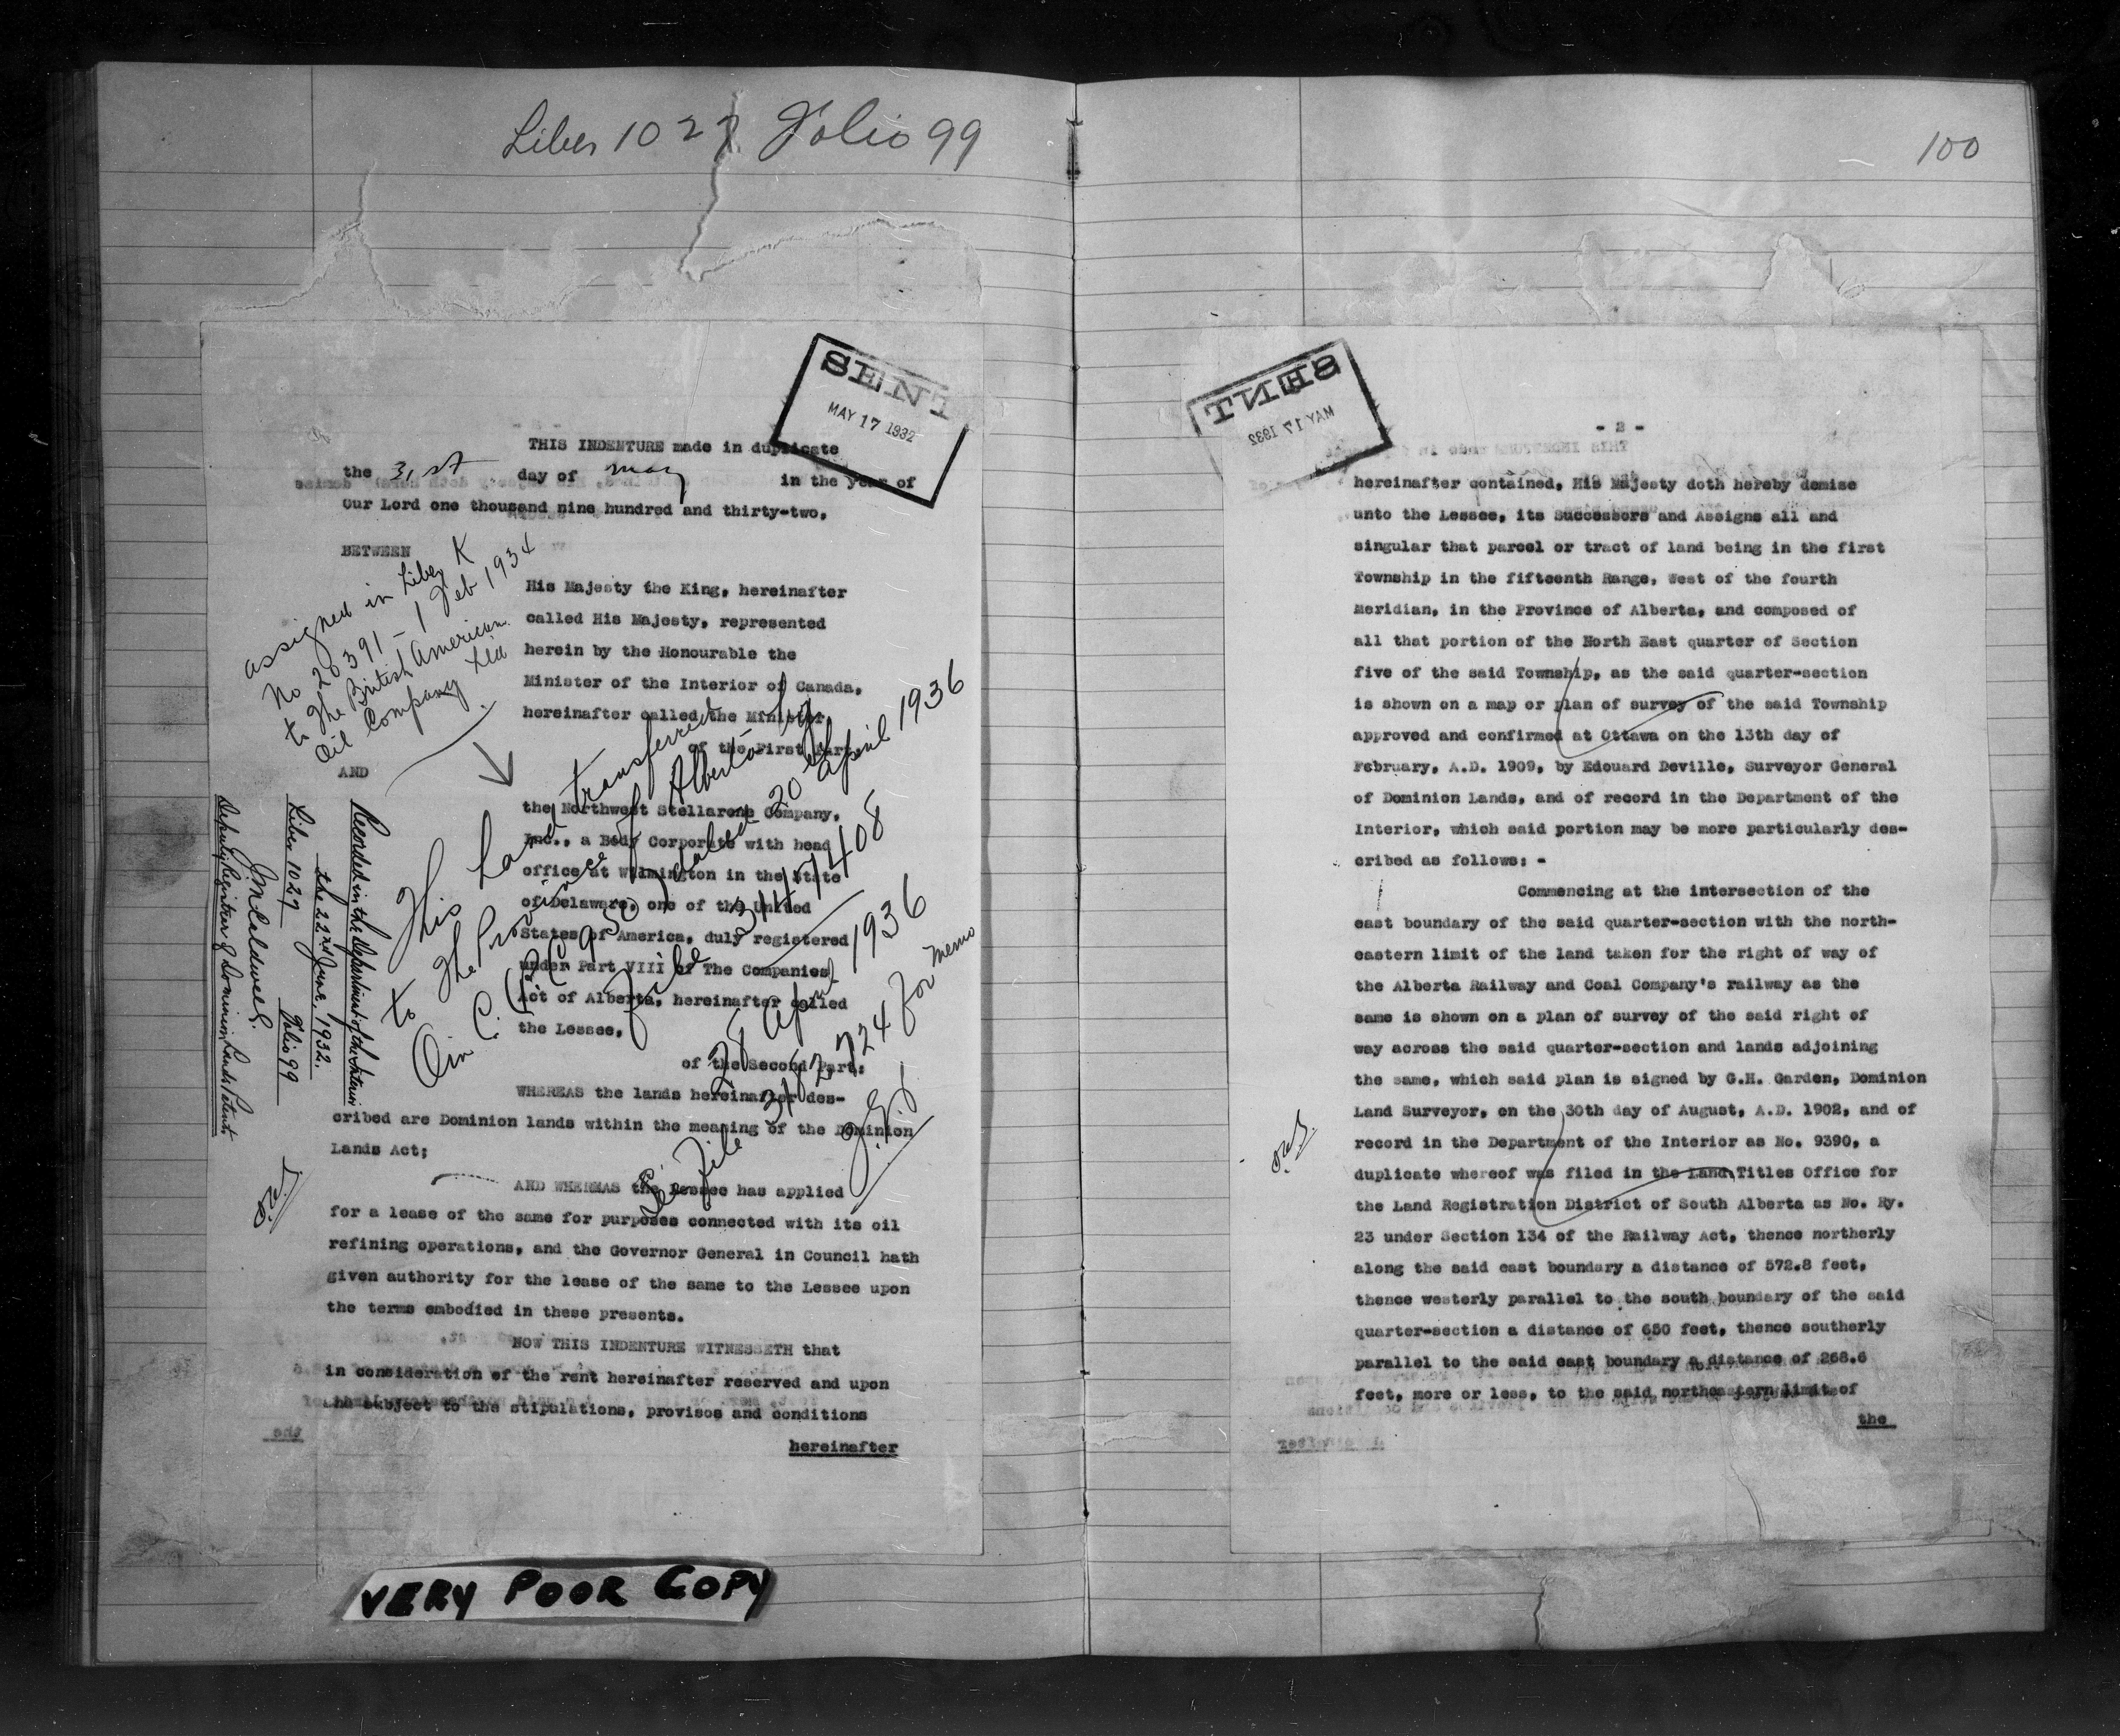 Liber 1027 Folio 99
SENT
MAY 17 1932
THIS INDENTURE made in duplicate
the 31st day of May in the year of
Our Lord one thousand nine hundred and thirty-two,
BETWEEN
assigned in Liber K
No 20391 - 1 Feb 1934
to The British American
Oil Company Ltd
His Majesty the King, hereinafter
called His Majesty, represented
herein by the Honourable the
Minister of the Interior of Canada,
hereinafter called the Minister,
of the First Part,
AND
the Northwest Stellarene Company,
Inc., a Body Corporate with head
office at Wilmington in the State
of Delaware, one of the United
States of America, duly registered
under Part VIII of The Companies
Act of Alberta, hereinafter called
the Lessee,
of the Second Part:
This Land transferred
to The Province of Alberta by
O in C. (P.C. 950) dated 20th April 1936
File 3147408
28 April 1936
See File 3162724 for memo
Recorded in the Department of the Interior
the 22nd June, 1932.
Liber 1027 Folio 99
Deputy Registrar of Dominion Lands Patents.
WHEREAS the lands hereinafter des-
cribed are Dominion lands within the meaning of the Dominion
Lands Act;
AND WHEREAS the Lessee has applied
for a lease of the same for purposes connected with its oil
refining operations, and the Governor General in Council hath
given authority for the lease of the same to the Lessee upon
the terms embodied in these presents.
NOW THIS INDENTURE WITNESSETH that
in consideration of the rent hereinafter reserved and upon
and subject to the stipulations, provisos and conditions
hereinafter
VERY POOR COPY
100
SENT
MAY 17 1932
- 2 -
hereinafter contained, His Majesty doth hereby demise
unto the Lessee, its Successors and Assigns all and
singular that parcel or tract of land being in the first
Township in the fifteenth Range, West of the fourth
Meridian, in the Province of Alberta, and composed of
all that portion of the North East quarter of Section
five of the said Township, as the said quarter-section
is shown on a map or plan of survey of the said Township
approved and confirmed at Ottawa on the 13th day of
February, A.D. 1909, by Edouard Deville, Surveyor General
of Dominion Lands, and of record in the Department of the
Interior, which said portion may be more particularly des-
cribed as follows: -
Commencing at the intersection of the
east boundary of the said quarter-section with the north-
eastern limit of the land taken for the right of way of
the Alberta Railway and Coal Company's railway as the
same is shown on a plan of survey of the said right of
way across the said quarter-section and lands adjoining
the same, which said plan is signed by G.H. Garden, Dominion
Land Surveyor, on the 30th day of August, A.D. 1902, and of
record in the Department of the Interior as No. 9390, a
duplicate whereof was filed in the Land Titles Office for
the Land Registration District of South Alberta as No. Ry.
23 under Section 134 of the Railway Act, thence northerly
along the said east boundary a distance of 572.8 feet,
thence westerly parallel to the south boundary of the said
quarter-section a distance of 650 feet, thence southerly
parallel to the said east boundary a distance of 268.6
feet, more or less, to the said northeastern limit of
the